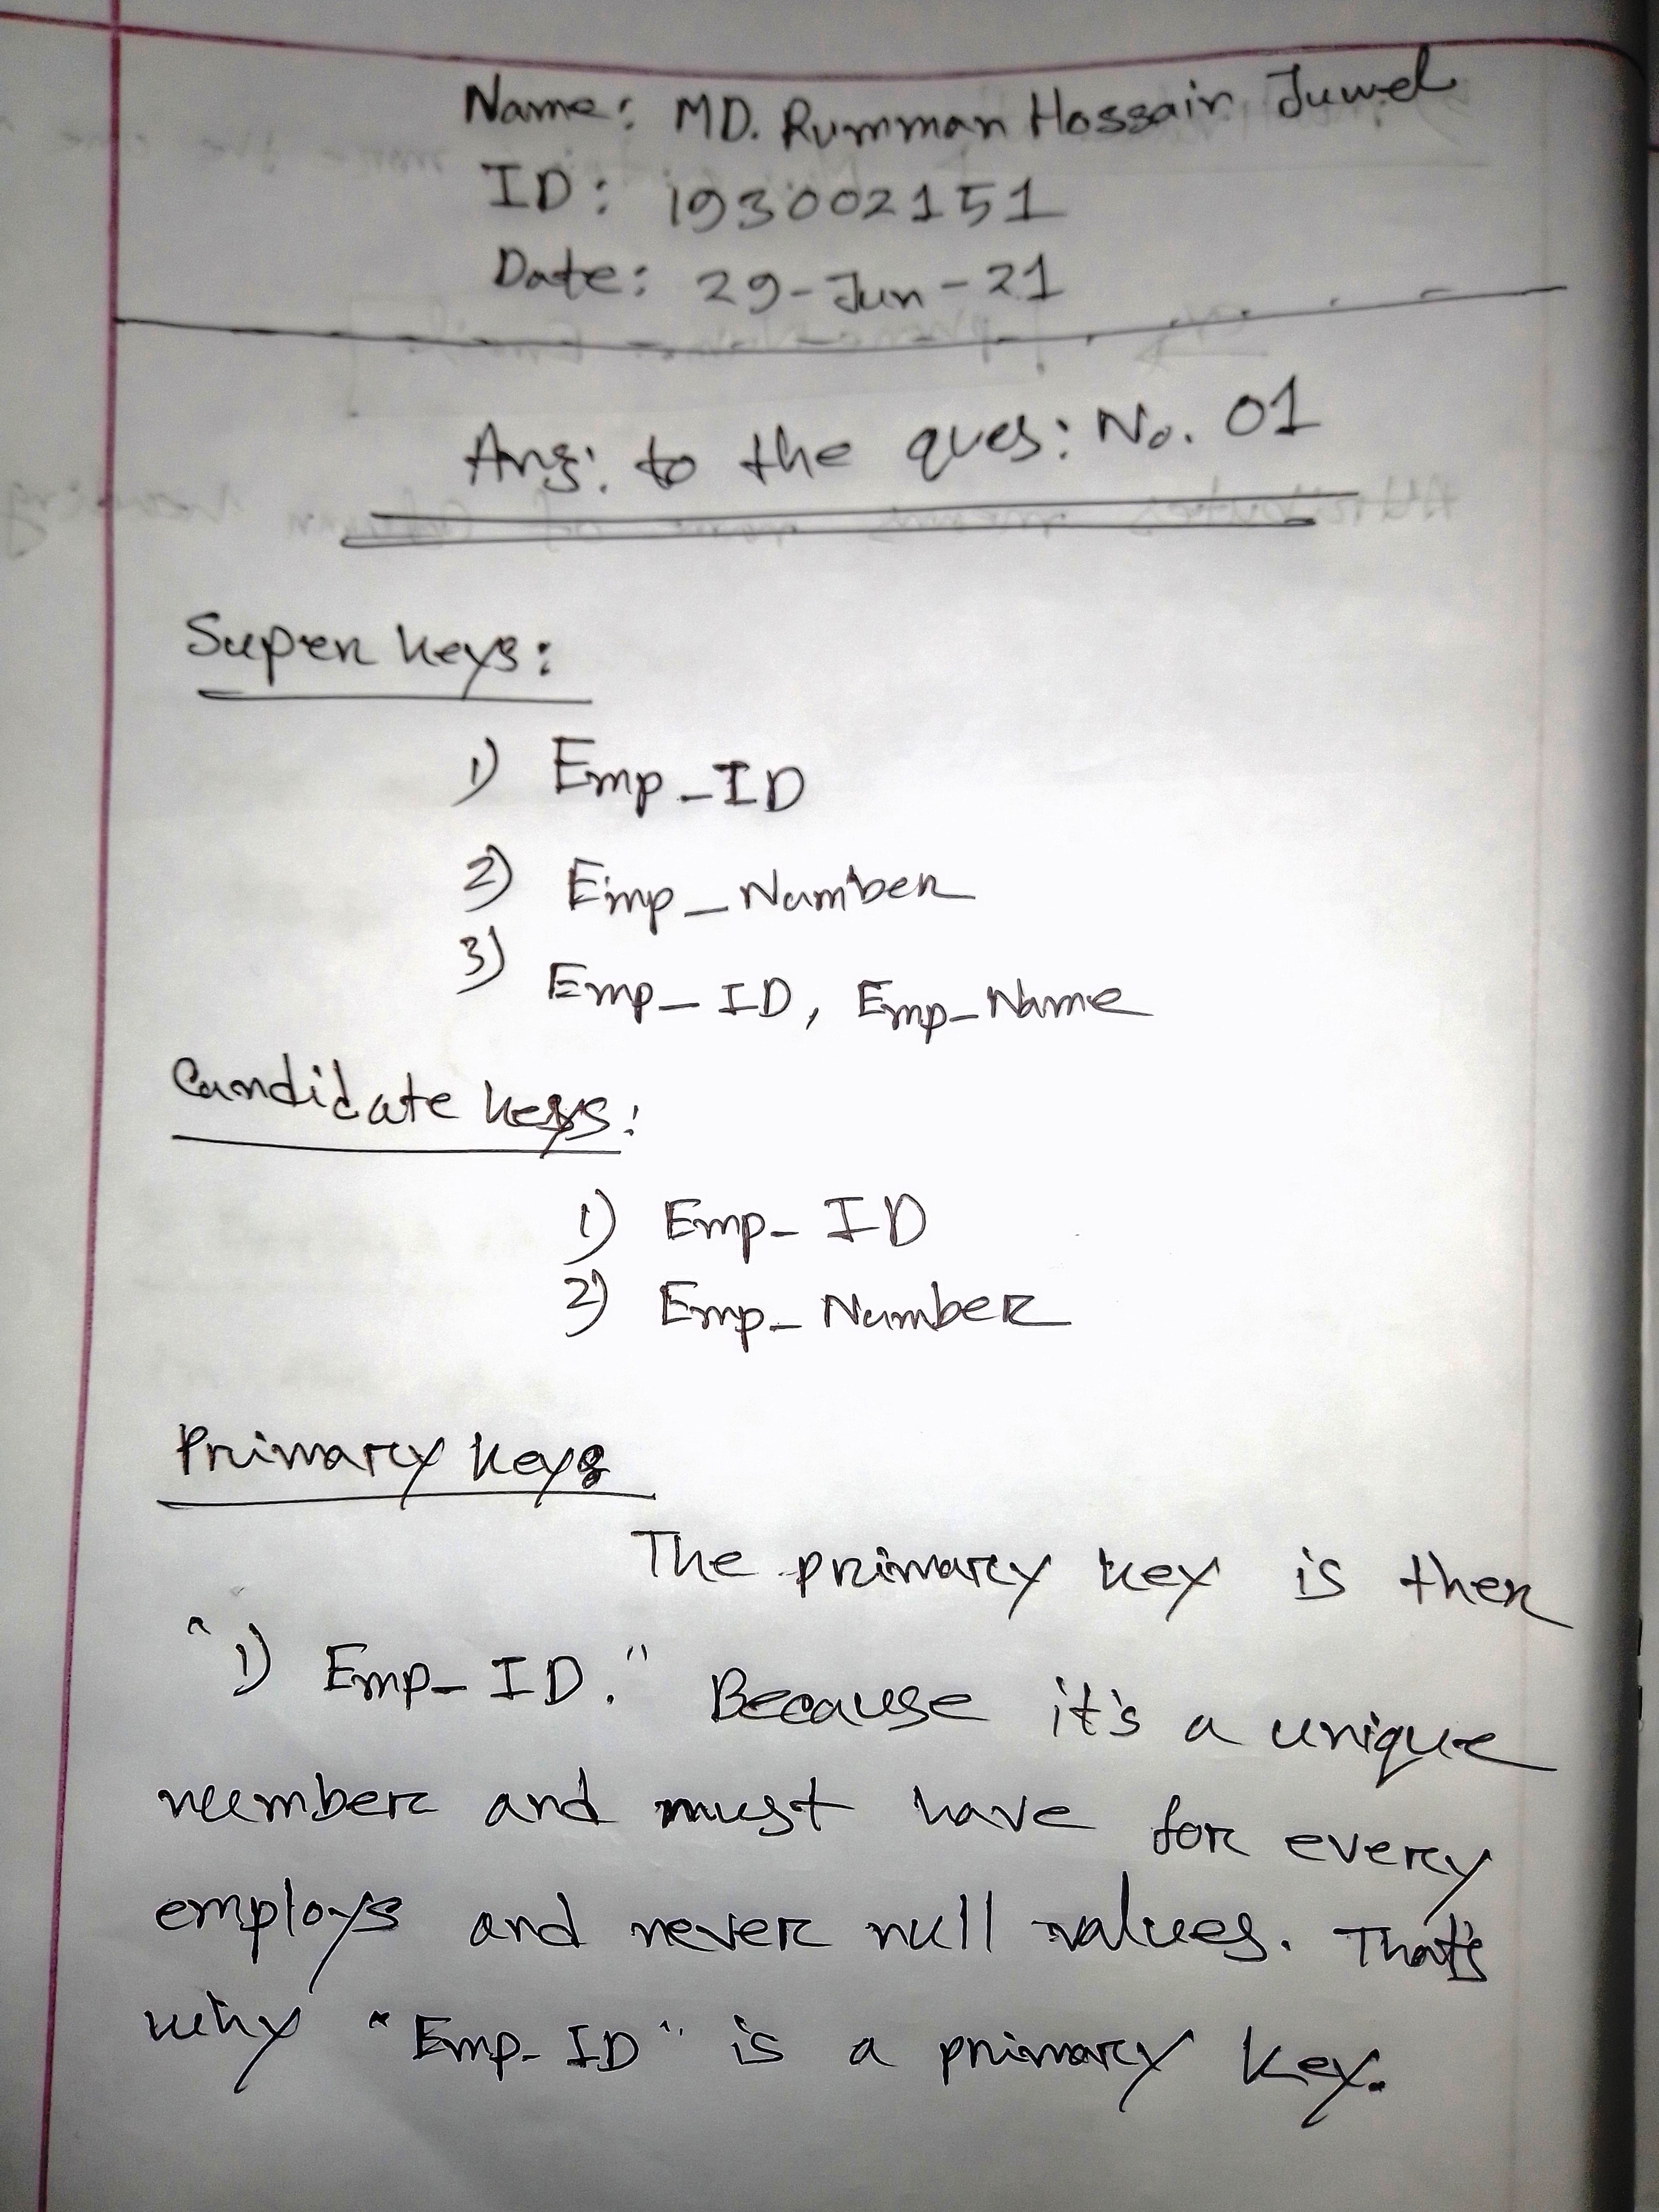 Name: MD. Rumman Hossain Juwel
ID: 193002151
Date: 29-Jun-21
Ans: to the ques: No. 01
Super keys:
1) Emp_ID
2) Emp_Number
3) Emp_ID, Emp_Name
Candidate keys:
1) Emp_ID
2) Emp_Number
Primary keys
The primary key is then
"1) Emp_ID." Because it's a unique
number and must have for every
employs and never null values. That's
why "Emp_ID" is a primary key.